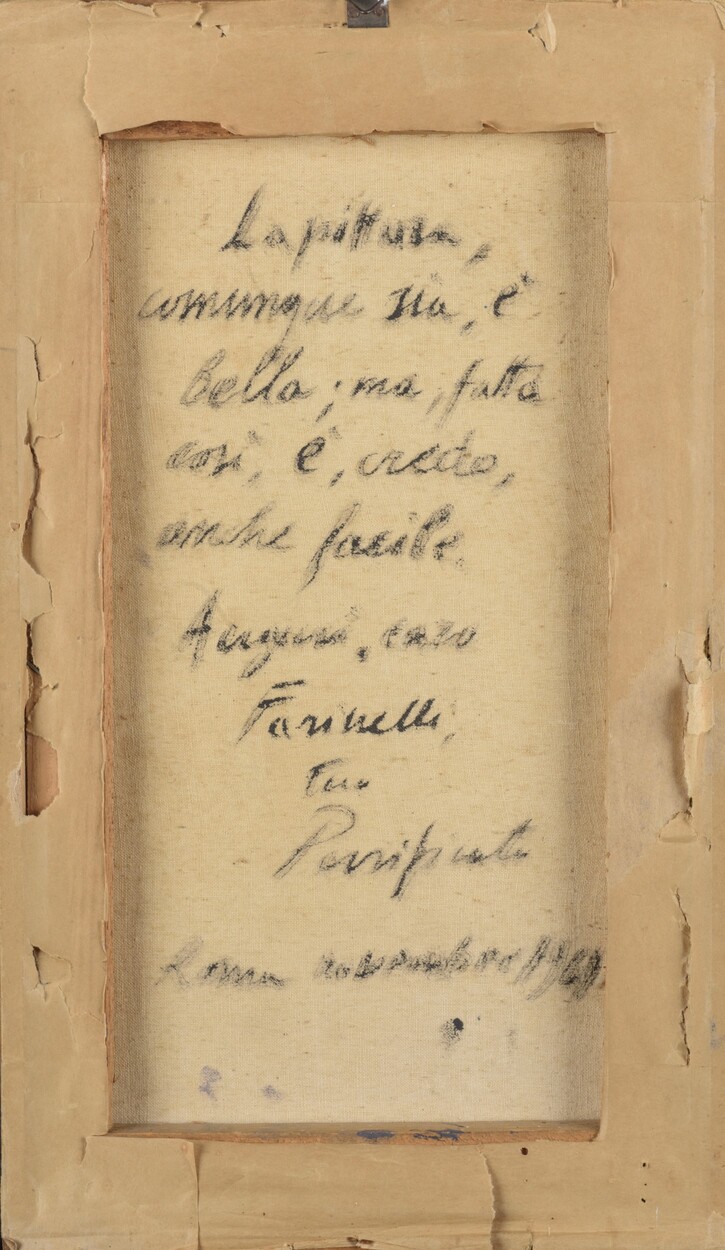 La pittura,
comunque sia, è
bella; ma, fatta
così, è, credo,
anche facile.
Auguri, caro
Farinelli,
tuo
Roma novembre